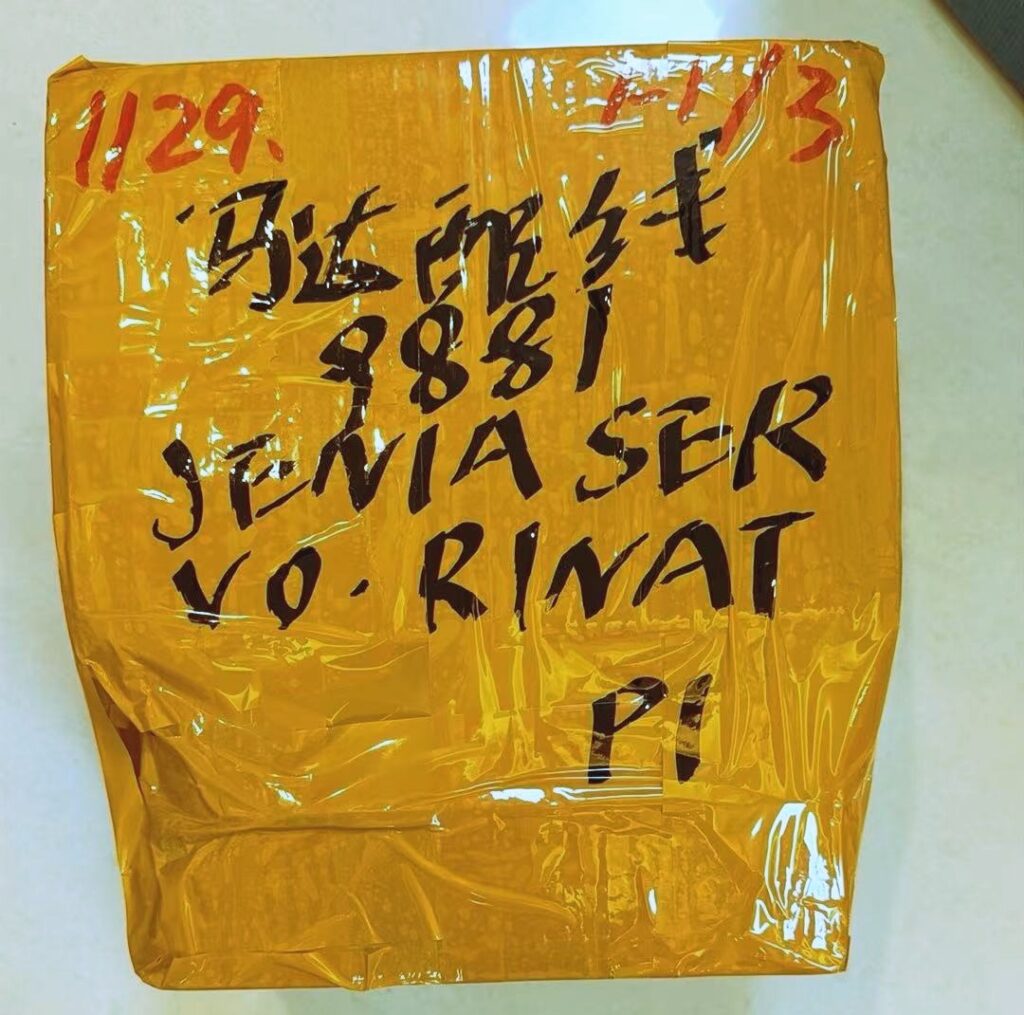 1129. 1-1/3
马达配线
9881
JENIA SER
VO. RINAT
P1